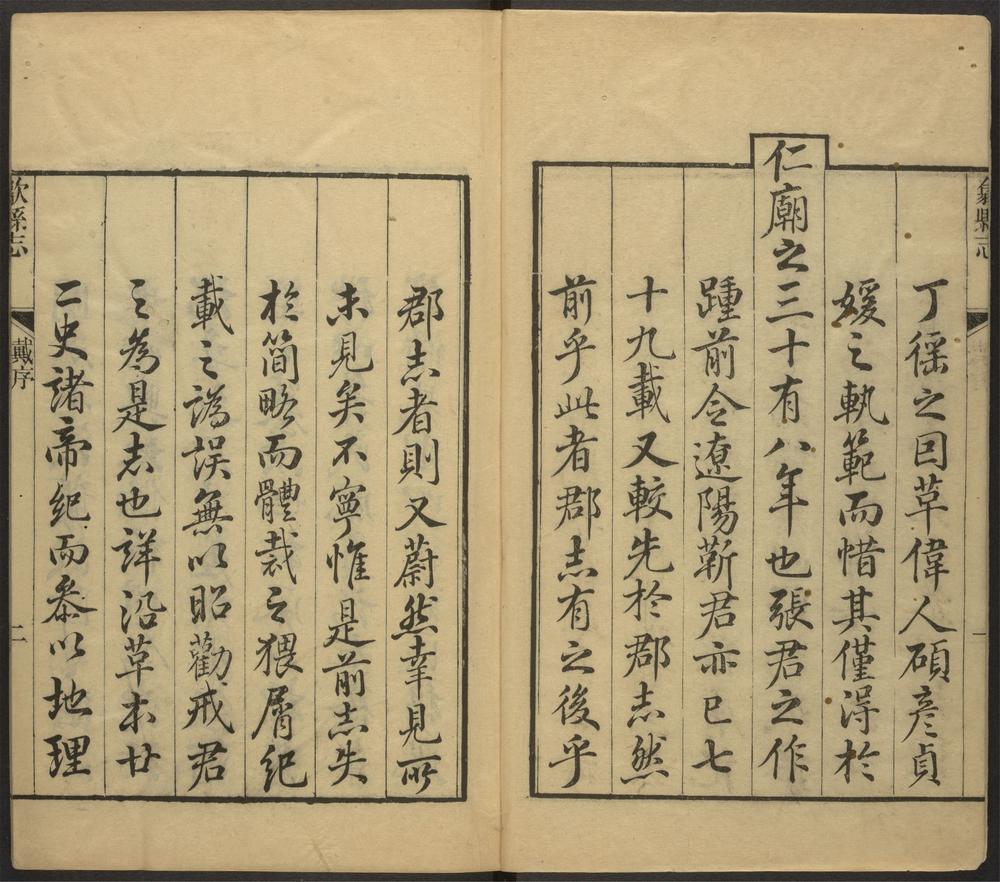 丁徭之因革偉人碩彥貞
媛之軌範而惜其僅淂於
仁廟之三十有八年也張君之作
踵前令遼陽靳君亦已七
十九載又較先於郡志然
前乎此者郡志有之後乎
郡志者則又蔚然幸見所
未見矣不寧惟是前志失
於簡略而體裁之猥屑紀
載之譌誤無以昭勸戒君
之為是志也詳沿革本廿
二史諸帝紀而叅以地理
歙縣志
戴序
二